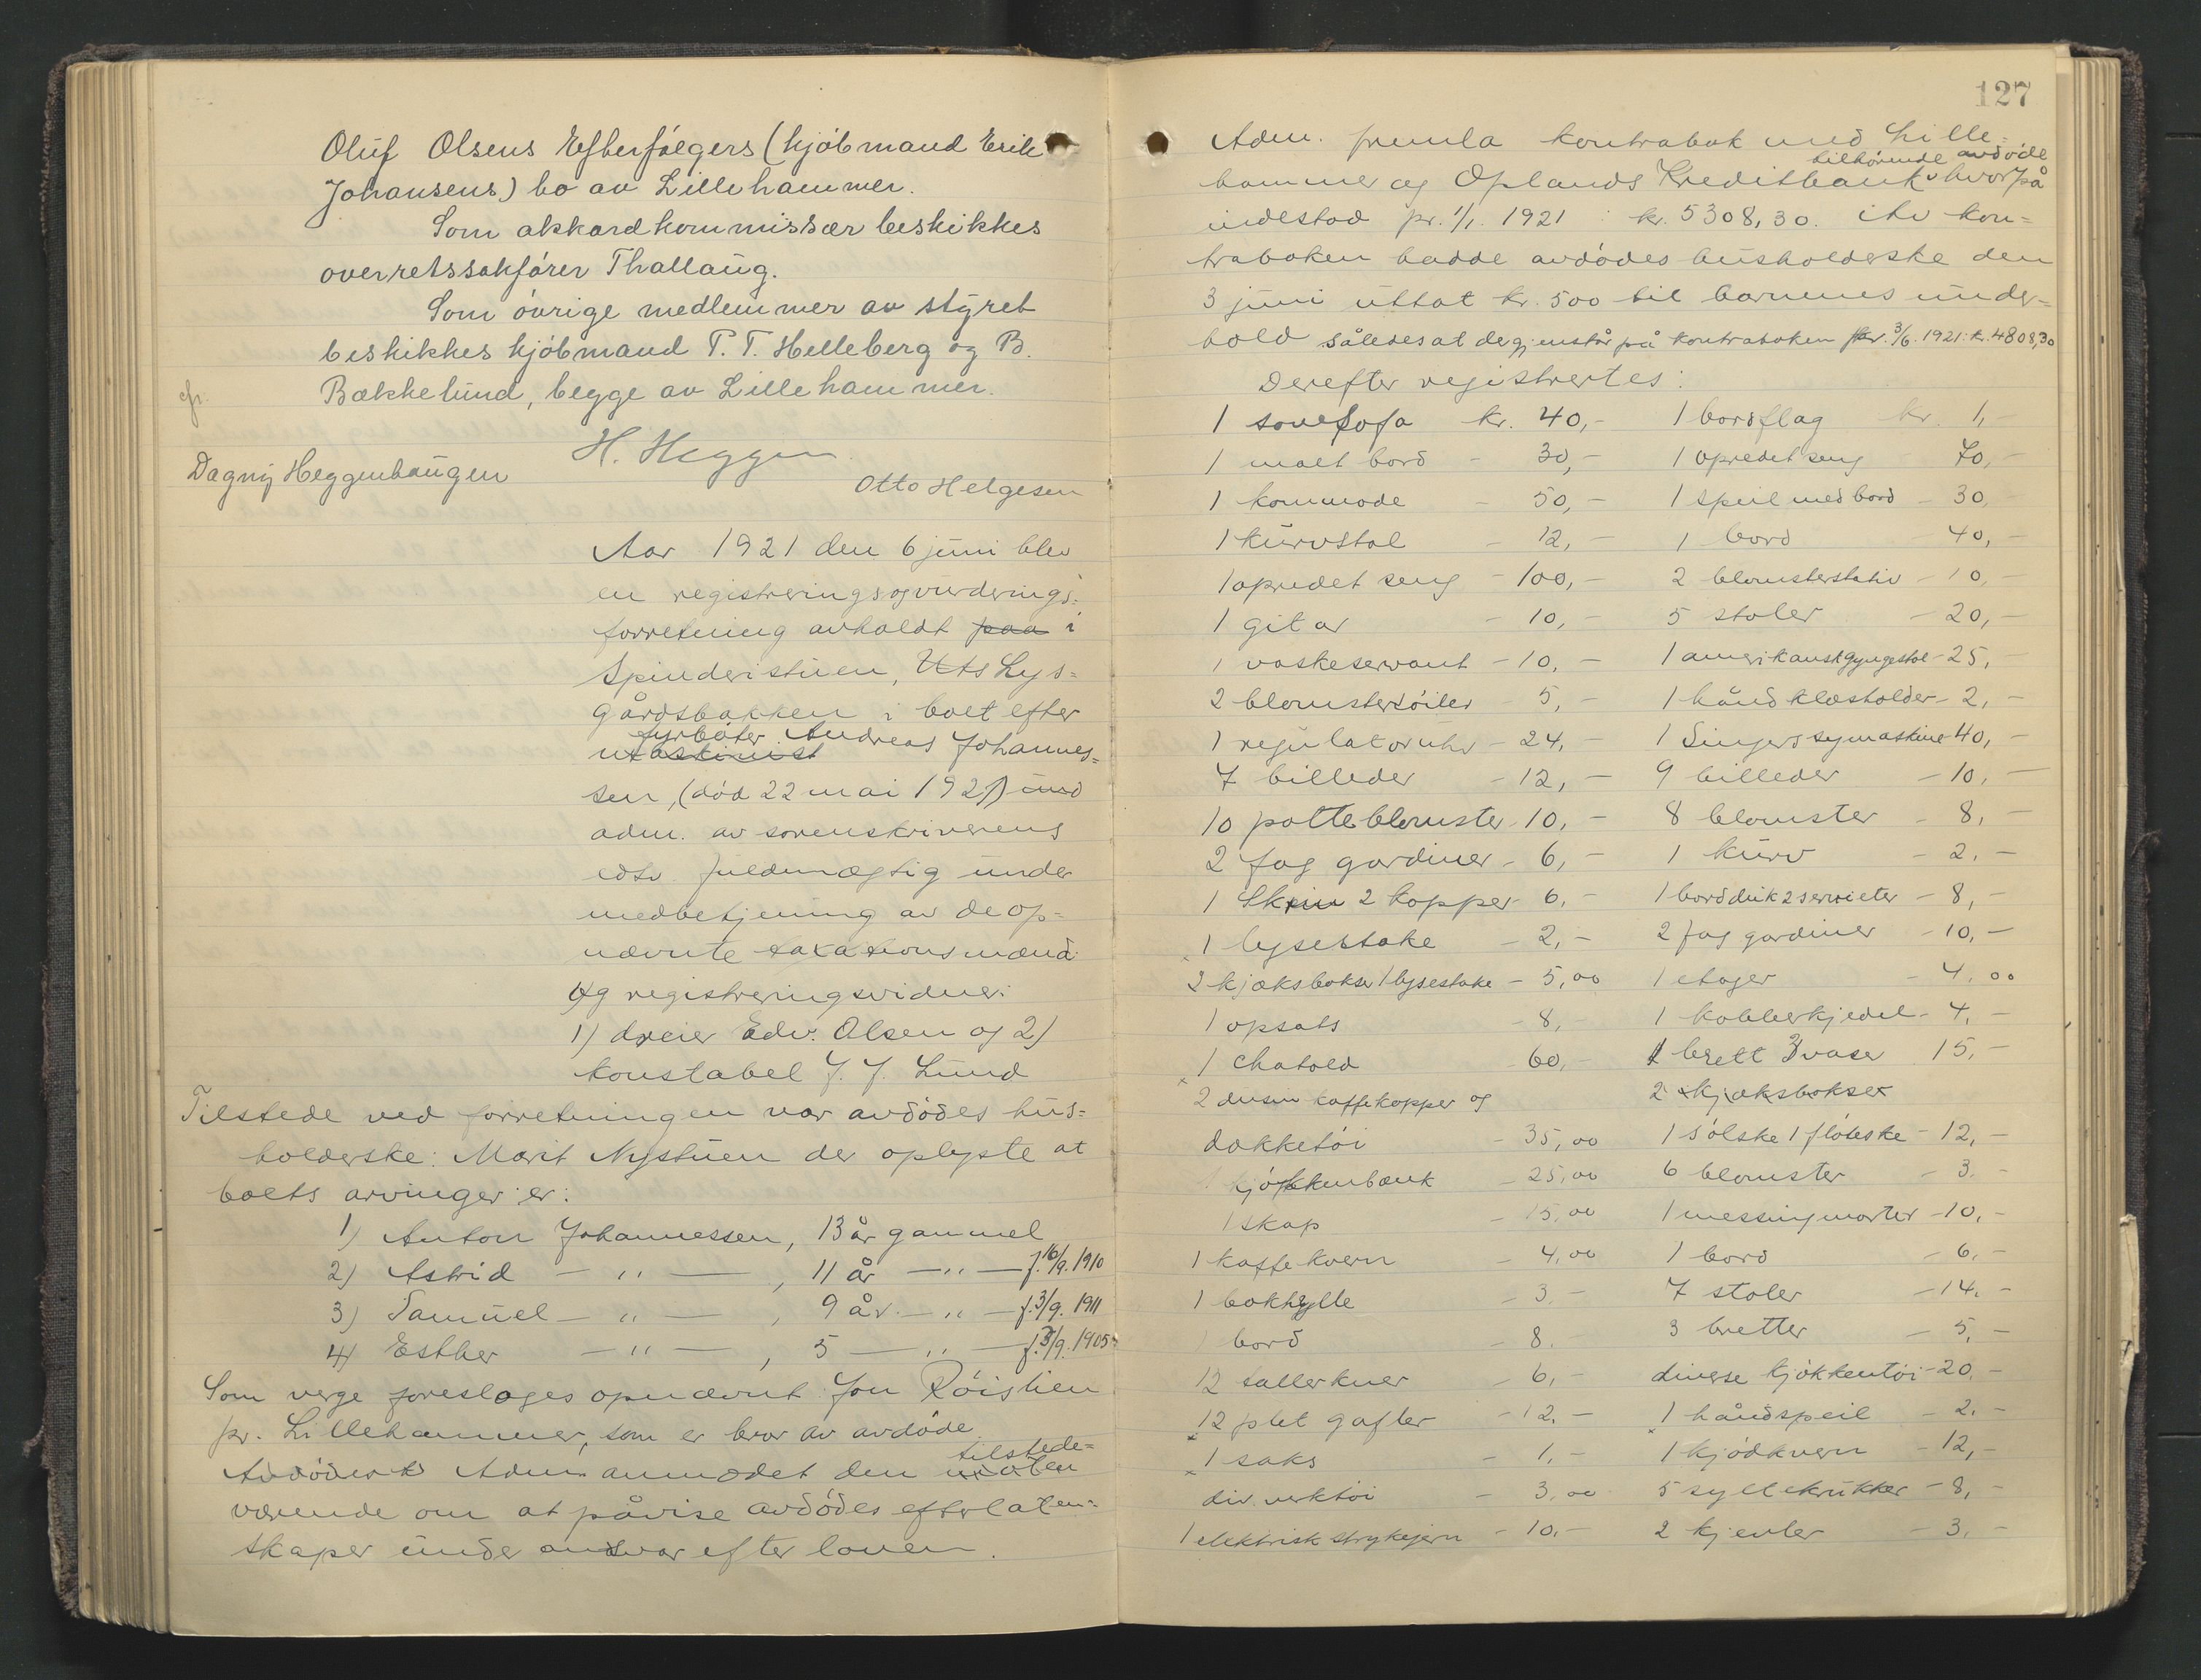 Oluf Olsens Efterfølgers (kjøbmand Erik
Johansens) bo av Lillehammer.
Som akkordkommissær beskikkes
overretssakfører Thallaug.
Som øvrige medlemmer av styret
beskikkes kjøbmand P. T. Helleberg og B.
Bækkelund, begge av Lillehammer.
H. Heggen
Dagny Heggenhaugen
Otto Helgesen
Aar 1921 den 6 juni blev
en registrerings og vurderings-
forretning avholdt paa i
Spinderistuen,
Lys-
gårdsbakken i boet efter
fyrbøter Andreas Johannes-
sen, (død 22 mai 1921) med
adm. av sorenskriverens
edsv. fuldmægtig under
medbetjening av de op-
nævnte taxationsmænd
og registreringsvidner:
1) dreier Edv. Olsen og 2)
konstabel J. J. Lund
Tilstede ved forretningen var avdødes hus-
holderske: Marit Nystuen der oplyste at
boets arvinger er:
1) Anton Johannessen, 13 år gammel
2) Astrid — " — , 11 år — " — f. 16/9. 1910
3) Samuel — " — , 9 år. — " — f. 3/9. 1911
4) Esther — " — , 5 — " — f. 3/9. 1905
Som verge foresloges opnævnt Jon Røistien
pr. Lillehammer, som er bror av avdøde
Adm. anmodet den tilstede-
værende om at påvise avdødes efterlaten-
skaper under ansvar efter loven.
127
Adm. fremla kontrabok med Lille-
hammer og Oplands Kreditbank tilhørende avdøde hvorpå
indestod pr. 1/1. 1921 : kr. 5308,30. Av kon-
traboken hadde avdødes husholderske den
3 juni uttat kr. 500 til barnenes under-
hold således at de gjenstår på kontraboken pr. 3/6. 1921: kr. 4808,30
Derefter registrertes:
1 sovesofa kr. 40,- 1 bordflag kr. 1,
1 malt bord - 30,- 1 opredet seng - 70,-
1 kommode - 50,- 1 speil med bord - 30
1 kurvstol - 12,- 1 bord 40,-
1 opredet seng - 100,- 2 blomsterstativ - 10,-
1 gitar - 10,- 5 stoler - 20,-
1 vaskeservant - 10,- 1 amerikansk gyngestol - 25,-
2 blomstersøiler 5,- 1 håndklæsholder - 2,-
1 regulatoruhr - 24,- 1 Singers symaskine 40,-
7 billeder - 12,- 9 billeder - 10,-
10 potteblomster 10,- 8 blomster - 8,-
2 fag gardiner - 6,- 1 kurv - 2,-
1 Skrin 2 kopper - 6,- 1 bordduk 2 servieter - 8,-
1 lysestake - 2,- 2 fag gardiner - 10,-
2 kjæksbokser 1 lysestake - 5,00 1 etager - 4,00
1 opsats - 8,- 1 kobberkjedel - 4,-
1 chatold - 60,- 1 brett 3 vaser 15,-
2 dusin kaffekopper og 2 kjæksbokser
dokketøi - 35,00 1 sølske 1 fløteske - 12,-
kjøkkenbænk - 25,00 6 blomster - 3,-
1 skap - 15,00 1 messingmorter - 10,-
1 kaffekvern - 4,00 1 bord - 6,-
1 bokhylle - 3,- 7 stoler - 14,-
1 bord - 8,- 3 bretter - 5,-
12 tallerkner - 6,- diverse kjøkkentøi - 20,-
12 plet gafler - 12,- 1 håndspeil - 2,-
1 saks - 1,- 1 kjødkvern - 12,-
div. verktøi - 3,00 5 syltekrukker - 8,-
1 elektrisk strykejern - 10,- 2 kjevler - 3,-